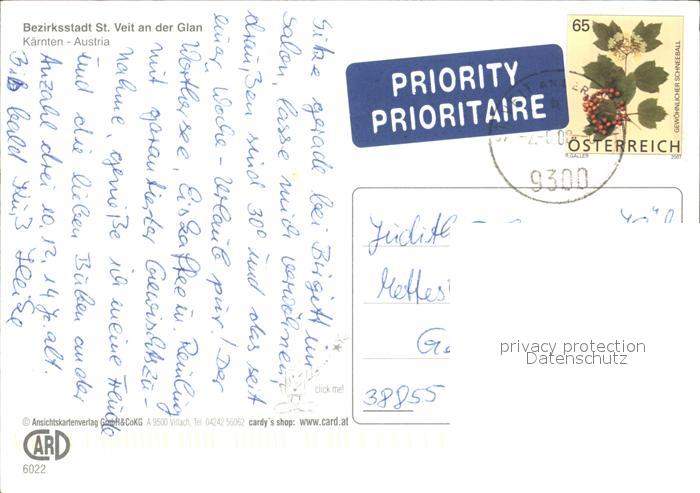 Bezirksstadt St. Veit an der Glan
Kärnten - Austria
Sitze gerade bei Birgitt im
Salon, lasse mich verwöhnen,
draußen sind 30° und das seit
einer Woche - Urlaub pur! Der
Wörthersee, Eiskaffee m.
mit garantierter Gewichtszu-
nahme, genieße ich meine Freude
und die lieben Buben an der
Anzahl drei 10, 12, 14 J. alt.
Bis bald Kuß Heike
PRIORITY
PRIORITAIRE
65
GEWÖHNLICHER SCHNEEBALL
ÖSTERREICH
R.GALLER
2007
9300
Judith
38855
privacy protection
Datenschutz
click me!
© Ansichtskartenverlag GmbH&CoKG A 9500 Villach, Tel. 04242 56062 cardy's shop: www.card.at
CARD
6022